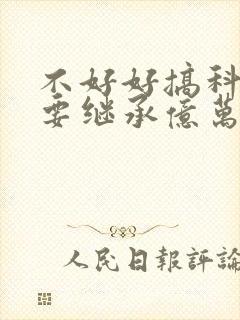 不好好搞科
要继承億萬
人民日報評論